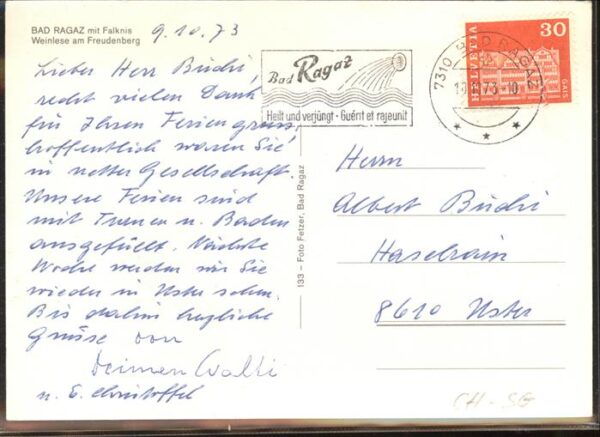 BAD RAGAZ mit Falknis
Weinlese am Freudenberg
9.10.73
Lieber Herr Büchi,
recht vielen Dank
für Ihren Feriengruss,
hoffentlich waren Sie
in netter Gesellschaft.
Unsere Ferien sind
mit Turnen u. Baden
ausgefüllt. Nächste
Woche werden wir Sie
wieder in Uster sehen.
Bis dahin herzliche
Grüsse von
Walti
u. E. Christoffel
133 – Foto Fetzer, Bad Ragaz
Bad Ragaz
Heilt und verjüngt · Guérit et rajeunit
7310 BAD RAGAZ
73-10
HELVETIA
30
GAIS
Herrn
Albert Büchi
Haselrain
8610 Uster
CH-SG